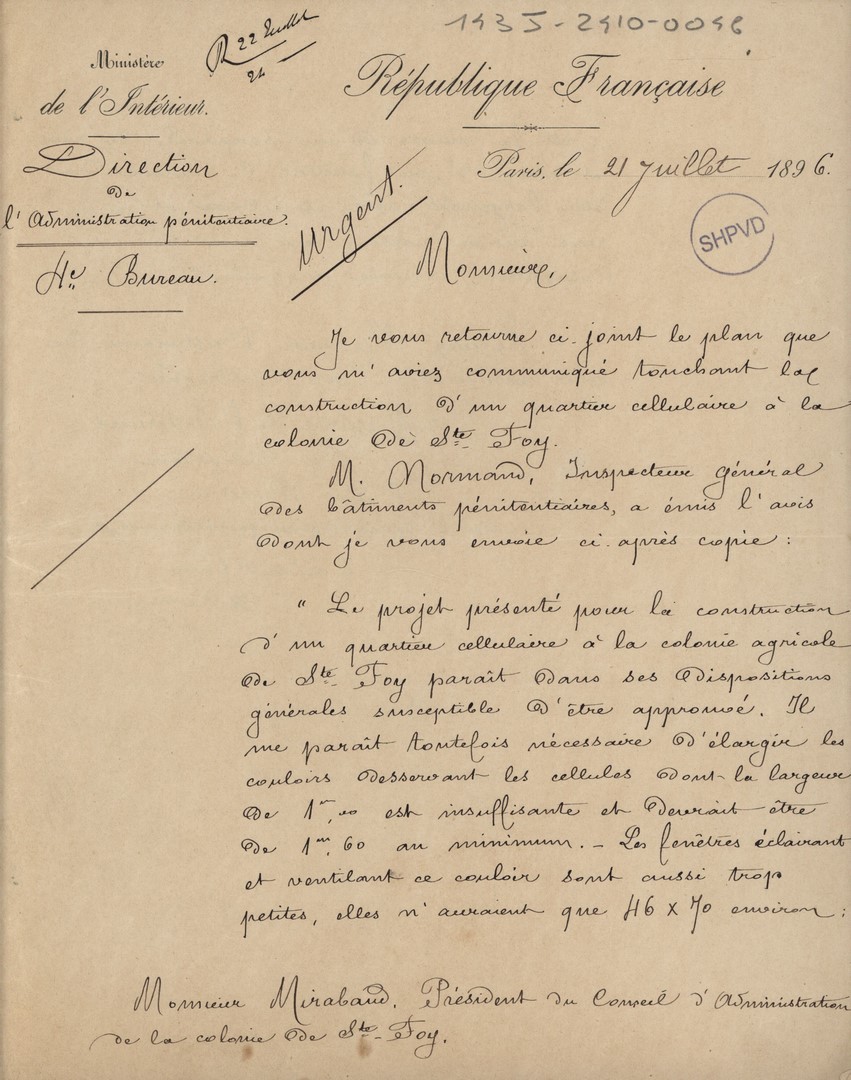 193J-2910-0046
R 22 Juillet
Ministère
de l'Intérieur.
République Française
Direction
de
l'Administration pénitentiaire.
4e Bureau.
Paris, le 21 Juillet 1896.
Urgent.
SHPVD
Monsieur,
Je vous retourne ci-joint le plan que
vous m'aviez communiqué touchant la
construction d'un quartier cellulaire à la
colonie de Ste Foy.
M. Normand, Inspecteur général
des bâtiments pénitentiaires, a émis l'avis
dont je vous envoie ci-après copie :
" Le projet présenté pour la construction
d'un quartier cellulaire à la colonie agricole
de Ste Foy paraît dans ses dispositions
générales susceptible d'être approuvé. Il
me paraît toutefois nécessaire d'élargir les
couloirs desservant les cellules dont la largeur
de 1m,00 est insuffisante et devrait être
de 1m,60 au minimum. - Les fenêtres éclairant
et ventilant ce couloir sont aussi trop
petites, elles n'auraient que 46 x 70 environ ;
Monsieur Mirabaud, Président du Conseil d'Administration
de la colonie de Ste-Foy.